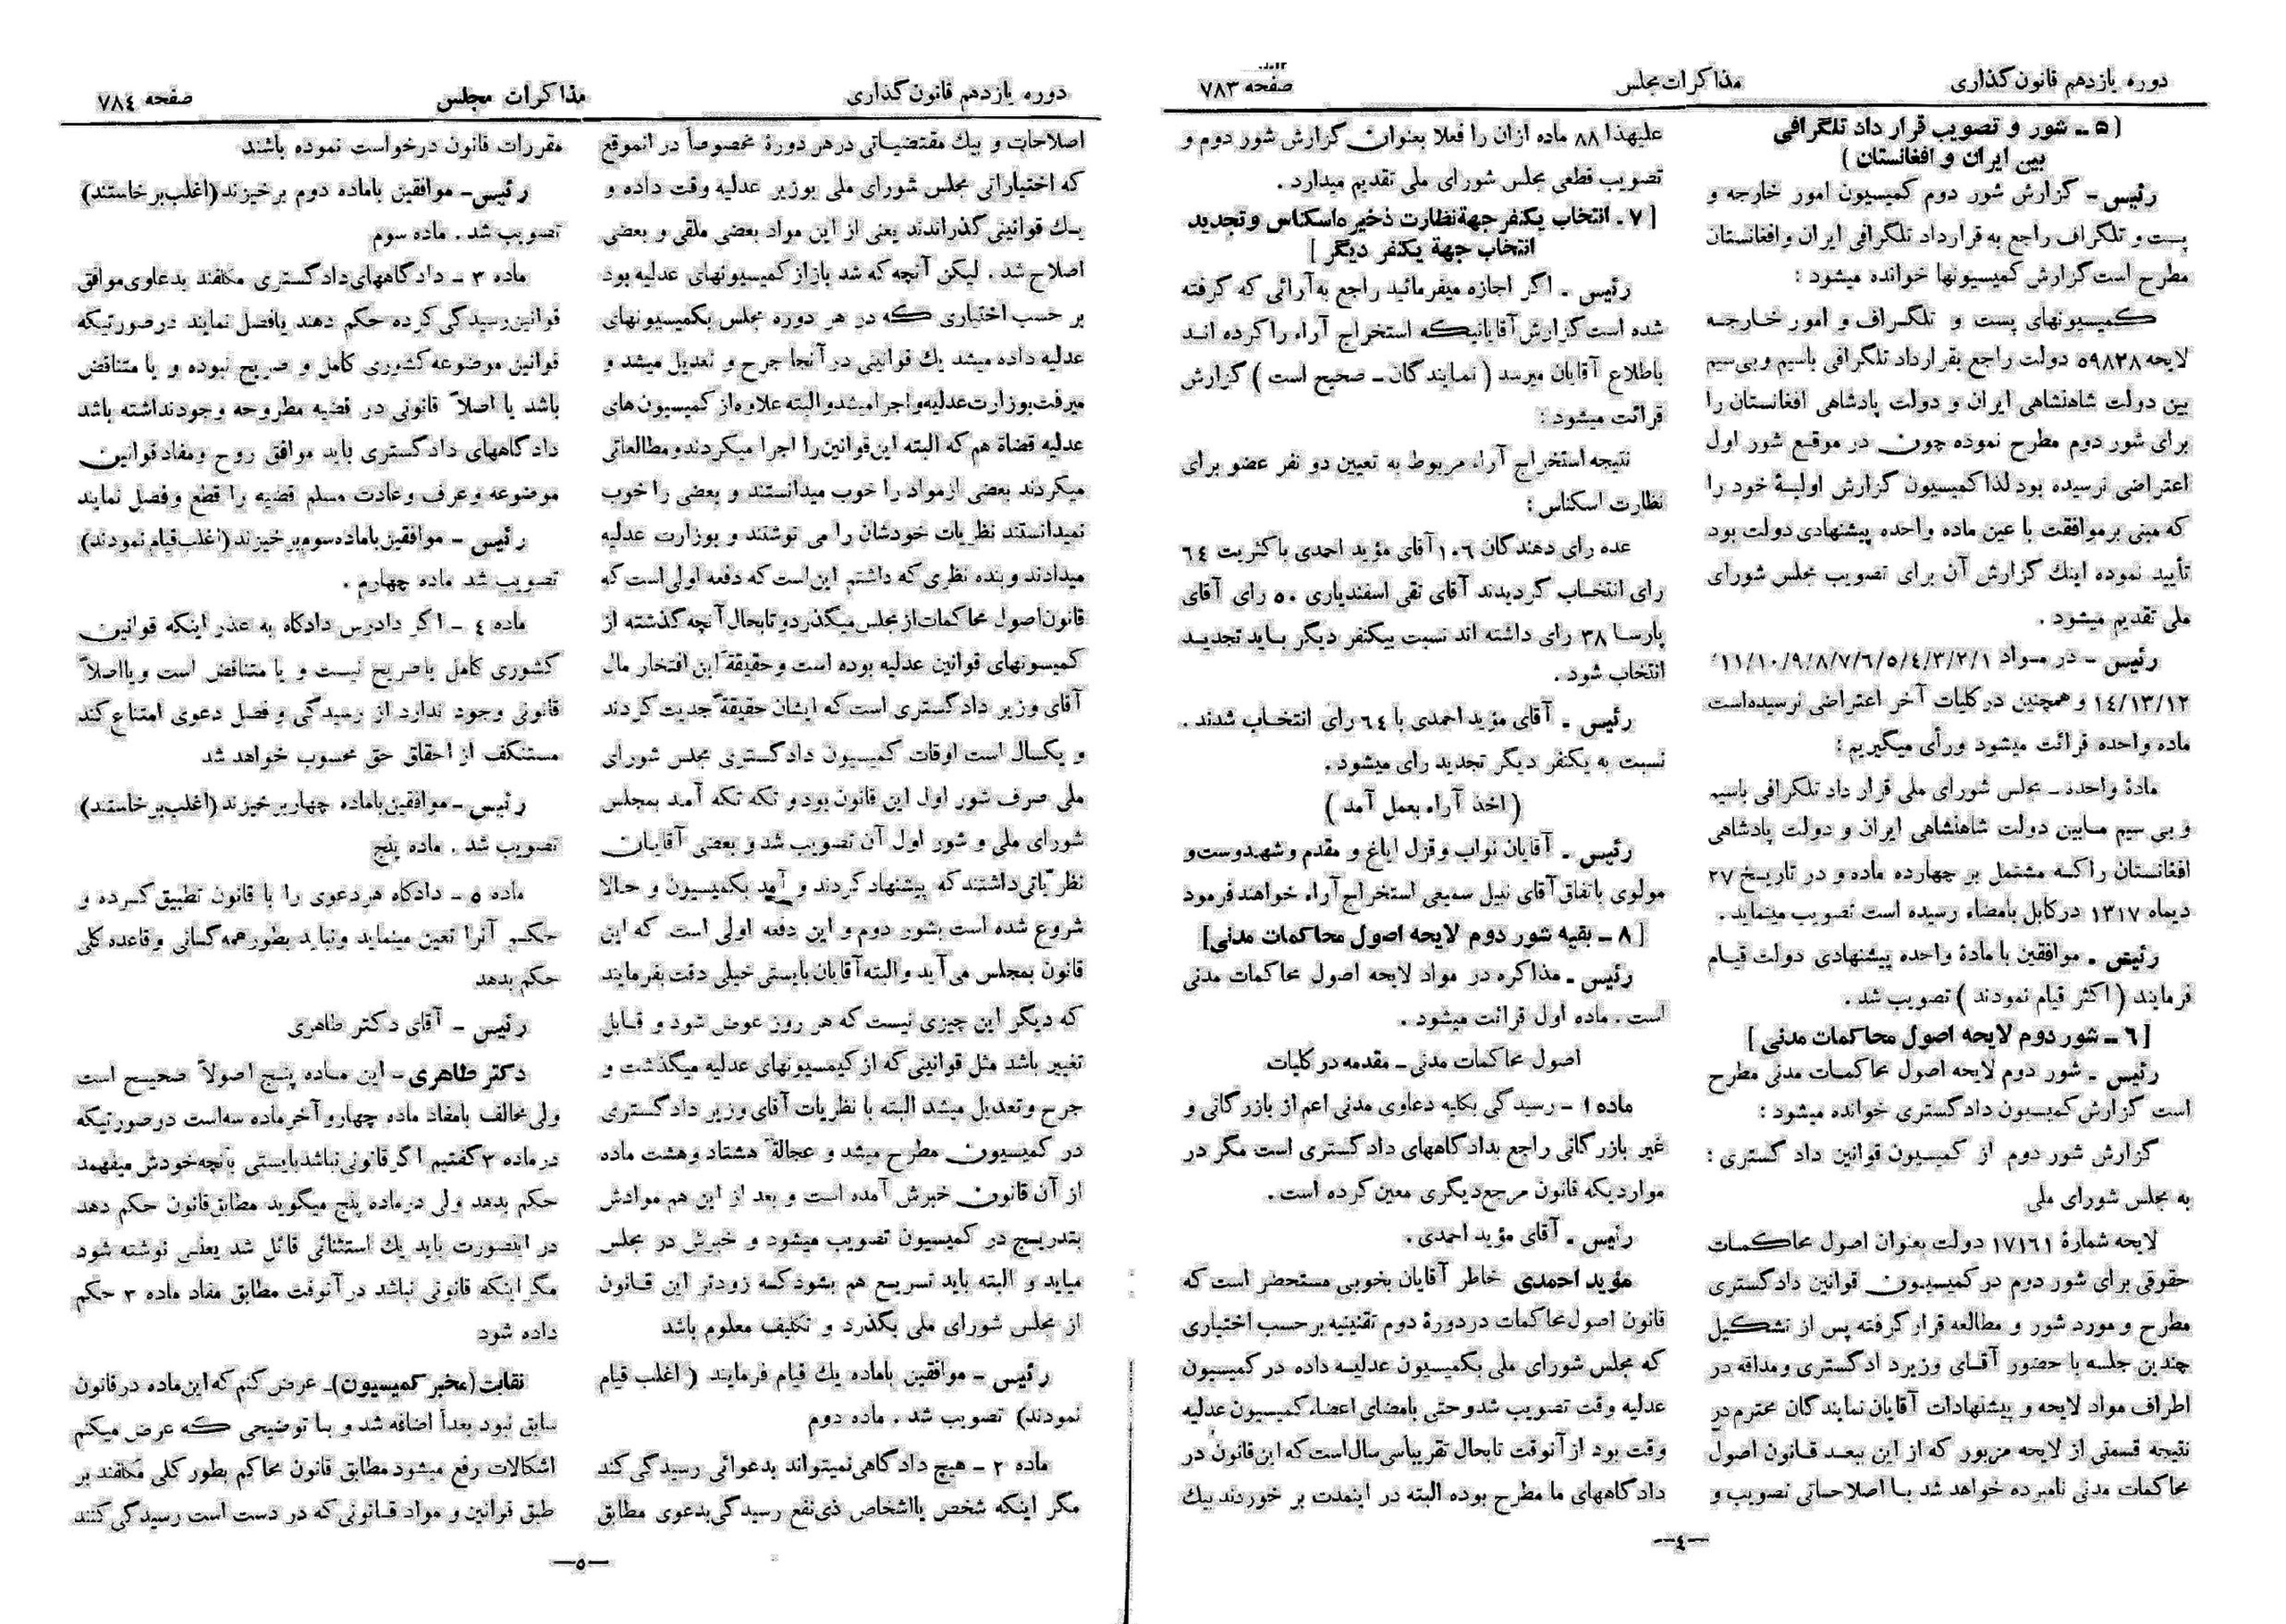 دوره یازدهم قانون‌گذاری
مذاکرات مجلس
صفحه ۷۸۳
[ ۵ ـ شور و تصویب قرار داد تلگرافی
بین ایران و افغانستان ]
رئیس ـ گزارش شور دوم کمیسیون امور خارجه و
پست و تلگراف راجع به قرارداد تلگرافی ایران و افغانستان
مطرح است گزارش کمیسیونها خوانده میشود :
کمیسیونهای پست و تلگراف و امور خارجه
لایحه ۵۹۸۲۸ دولت راجع بقرارداد تلگرافی باسیم و بی‌سیم
بین دولت شاهنشاهی ایران و دولت پادشاهی افغانستان را
برای شور دوم مطرح نموده چون در موقع شور اول
اعتراضی نرسیده بود لذا کمیسیون گزارش اولیهٔ خود را
که مبنی بر موافقت با عین ماده واحده پیشنهادی دولت بود
تأیید نموده اینك گزارش آن برای تصویب مجلس شورای
ملی تقدیم میشود .
رئیس ـ در مواد ۱/۲/۳/٤/۵/٦/۷/۸/۹/۱۰/۱۱/
۱۲/۱۳/۱٤ و همچنین در کلیات آخر اعتراضی نرسیده‌است
ماده واحده قرائت میشود و رأی میگیریم :
مادهٔ واحده ـ مجلس شورای ملی قرار داد تلگرافی باسیم
و بی سیم مابین دولت شاهنشاهی ایران و دولت پادشاهی
افغانستان را که مشتمل بر چهارده ماده و در تاریخ ۲۷
دیماه ۱۳۱۷ در کابل بامضاء رسیده است تصویب مینماید .
رئیس ـ موافقین با مادهٔ واحده پیشنهادی دولت قیام
فرمایند ( اکثر قیام نمودند ) تصویب شد .
[ ٦ ـ شور دوم لایحه اصول محاکمات مدنی ]
رئیس ـ شور دوم لایحه اصول محاکمات مدنی مطرح
است گزارش کمیسیون دادگستری خوانده میشود :
گزارش شور دوم از کمیسیون قوانین داد گستری :
به مجلس شورای ملی
لایحه شمارهٔ ۱۷۱٦۱ دولت بعنوان اصول محاکمات
حقوقی برای شور دوم در کمیسیون قوانین دادگستری
مطرح و مورد شور و مطالعه قرار گرفته پس از تشکیل
چندین جلسه با حضور آقای وزیر دادگستری و مداقه در
اطراف مواد لایحه و پیشنهادات آقایان نمایندگان محترم در
نتیجه قسمتی از لایحه مزبور که از این ببعد قانون اصول
محاکمات مدنی نامبرده خواهد شد با اصلاحاتی تصویب و
علیهذا ۸۸ ماده ازان را فعلا بعنوان گزارش شور دوم و
تصویب قطعی مجلس شورای ملی تقدیم میدارد .
[ ۷ ـ انتخاب یکنفر جهة نظارت ذخیره اسکناس و تجدید
انتخاب جهة یکنفر دیگر ]
رئیس ـ اگر اجازه میفرمائید راجع به آرائی که گرفته
شده است گزارش آقایانیکه استخراج آراء را کرده اند
باطلاع آقایان میرسد ( نمایندگان ـ صحیح است ) گزارش
قرائت میشود :
نتیجه استخراج آراء مربوط به تعیین دو نفر عضو برای
نظارت اسکناس :
عده رای دهندگان ۱۰٦ آقای مؤید احمدی باکثریت ٦٤
رای انتخاب گردیدند آقای تقی اسفندیاری ۵۰ رای آقای
پارسا ۳۸ رای داشته اند نسبت بیکنفر دیگر باید تجدید
انتخاب شود .
رئیس ـ آقای مؤید احمدی با ٦٤ رای انتخاب شدند .
نسبت به یکنفر دیگر تجدید رای میشود .
( اخذ آراء بعمل آمد )
رئیس ـ آقایان نواب و قزل ایاغ و مقدم و شهدوست و
مولوی باتفاق آقای نبیل سمیعی استخراج آراء خواهند فرمود
[ ۸ ـ بقیه شور دوم لایحه اصول محاکمات مدنی]
رئیس ـ مذاکره در مواد لایحه اصول محاکمات مدنی
است . ماده اول قرائت میشود .
اصول محاکمات مدنی ـ مقدمه در کلیات
ماده ۱ ـ رسیدگی بکلیه دعاوی مدنی اعم از بازرگانی و
غیر بازرگانی راجع بدادگاههای دادگستری است مگر در
مواردیکه قانون مرجع دیگری معین کرده است .
رئیس ـ آقای مؤید احمدی .
مؤید احمدی خاطر آقایان بخوبی مستحضر است که
قانون اصول محاکمات در دورهٔ دوم تقنینیه بر حسب اختیاری
که مجلس شورای ملی بکمیسیون عدلیه داده در کمیسیون
عدلیه وقت تصویب شد و حتی بامضای اعضاء کمیسیون عدلیه
وقت بود از آنوقت تابحال تقریباً سی سال است که این قانون در
دادگاههای ما مطرح بوده البته در اینمدت بر خوردند بیك
—٤—
دوره یازدهم قانون‌گذاری
مذاکرات مجلس
صفحه ۷۸٤
اصلاحات و بیك مقتضیاتی در هر دورهٔ مخصوصاً در انموقع
که اختیاراتی مجلس شورای ملی بوزیر عدلیه وقت داده و
یك قوانینی گذراندند یعنی از این مواد بعضی ملقی و بعضی
اصلاح شد . لیکن آنچه که شد باز از کمیسیونهای عدلیه بود
بر حسب اختیاری که در هر دوره مجلس بکمیسیونهای
عدلیه داده میشد یك قوانینی در آنجا جرح و تعدیل میشد و
میرفت بوزارت عدلیه و اجرا میشد و البته علاوه از کمیسیون های
عدلیه قضاة هم که البته این قوانین را اجرا میکردند و مطالعاتی
میکردند بعضی از مواد را خوب میدانستند و بعضی را خوب
نمیدانستند نظریات خودشان را می نوشتند و بوزارت عدلیه
میدادند و بنده نظری که داشتم این است که دفعه اولی است که
قانون اصول محاکمات از مجلس میگذرد و تابحال آنچه گذشته از
کمیسونهای قوانین عدلیه بوده است و حقیقةً این افتخار مال
آقای وزیر دادگستری است که ایشان حقیقةً جدیت کردند
و یکسال است اوقات کمیسیون دادگستری مجلس شورای
ملی صرف شور اول این قانون بود و تکه تکه آمد بمجلس
شورای ملی و شور اول آن تصویب شد و بعضی آقایان
نظریّاتی داشتند که پیشنهاد کردند و آمد بکمیسیون و حالا
شروع شده است بشور دوم و این دفعه اولی است که این
قانون بمجلس می‌آید و البته آقایان بایستی خیلی دقت بفرمایند
که دیگر این چیزی نیست که هر روز عوض شود و قابل
تغییر باشد مثل قوانینی که از کیمسیونهای عدلیه میگذشت و
جرح و تعدیل میشد البته با نظریات آقای وزیر دادگستری
در کمیسیون مطرح میشد و عجالةً هشتاد و هشت ماده
از آن قانون خبرش آمده است و بعد از این هم موادش
بتدریج در کمیسیون تصویب میشود و خبرش در مجلس
میاید و البته باید تسریع هم بشود که زودتر این قانون
از مجلس شورای ملی بگذرد و تکلیف معلوم باشد
رئیس ـ موافقین باماده یك قیام فرمایند ( اغلب قیام
نمودند) تصویب شد . ماده دوم
ماده ۲ ـ هیچ دادگاهی نمیتواند بدعوائی رسیدگی کند
مگر اینکه شخص یا اشخاص ذی‌نفع رسیدگی بدعوی مطابق
مقررات قانون درخواست نموده باشند
رئیس ـ موافقین باماده دوم برخیزند (اغلب برخاستند)
تصویب شد . ماده سوم
ماده ۳ ـ دادگاههای دادگستری مکلفند بدعاوی موافق
قوانین رسیدگی کرده حکم دهند یا فصل نمایند در صورتیکه
قوانین موضوعه کشوری کامل و صریح نبوده و یا متناقض
باشد یا اصلاً قانونی در قضیه مطروحه وجود نداشته باشد
دادگاههای دادگستری باید موافق روح و مفاد قوانین
موضوعه و عرف و عادت مسلم قضیه را قطع و فصل نمایند
رئیس ـ موافقین باماده سوم برخیزند (اغلب قیام نمودند)
تصویب شد ماده چهارم .
ماده ٤ ـ اگر دادرس دادگاه به عذر اینکه قوانین
کشوری کامل یا صریح نیست و یا متناقض است و یا اصلاً
قانونی وجود ندارد از رسیدگی و فصل دعوی امتناع کند
مستنکف از احقاق حق محسوب خواهد شد
رئیس ـ موافقین باماده چهار برخیزند (اغلب برخاستند)
تصویب شد . ماده پنج
ماده ۵ ـ دادگاه هر دعوی را با قانون تطبیق کرده و
حکم آنرا تعین مینماید و نباید بطور همه گسانی و قاعده کلی
حکم بدهد
رئیس ـ آقای دکتر طاهری
دکتر طاهری ـ این ماده پنج اصولاً صحیح است
ولی مخالف بامفاد ماده چهار و آخر ماده سه است در صورتیکه
در ماده ۳ گفتیم اگر قانونی نباشد بایستی بآنچه خودش میفهمد
حکم بدهد ولی در ماده پنج میگوید مطابق قانون حکم دهد
در اینصورت باید یك استثنائی قائل شد یعنی نوشته شود
مگر اینکه قانونی نباشد در آنوقت مطابق مفاد ماده ۳ حکم
داده شود
نقابت (مخبر کمیسیون)ـ عرض کنم که این ماده در قانون
سابق نبود بعداً اضافه شد و با توضیحی که عرض میکنم
اشکالات رفع میشود مطابق قانون محاکم بطور کلی مکلفند بر
طبق قوانین و مواد قانونی که در دست است رسیدگی کنند
—۵—